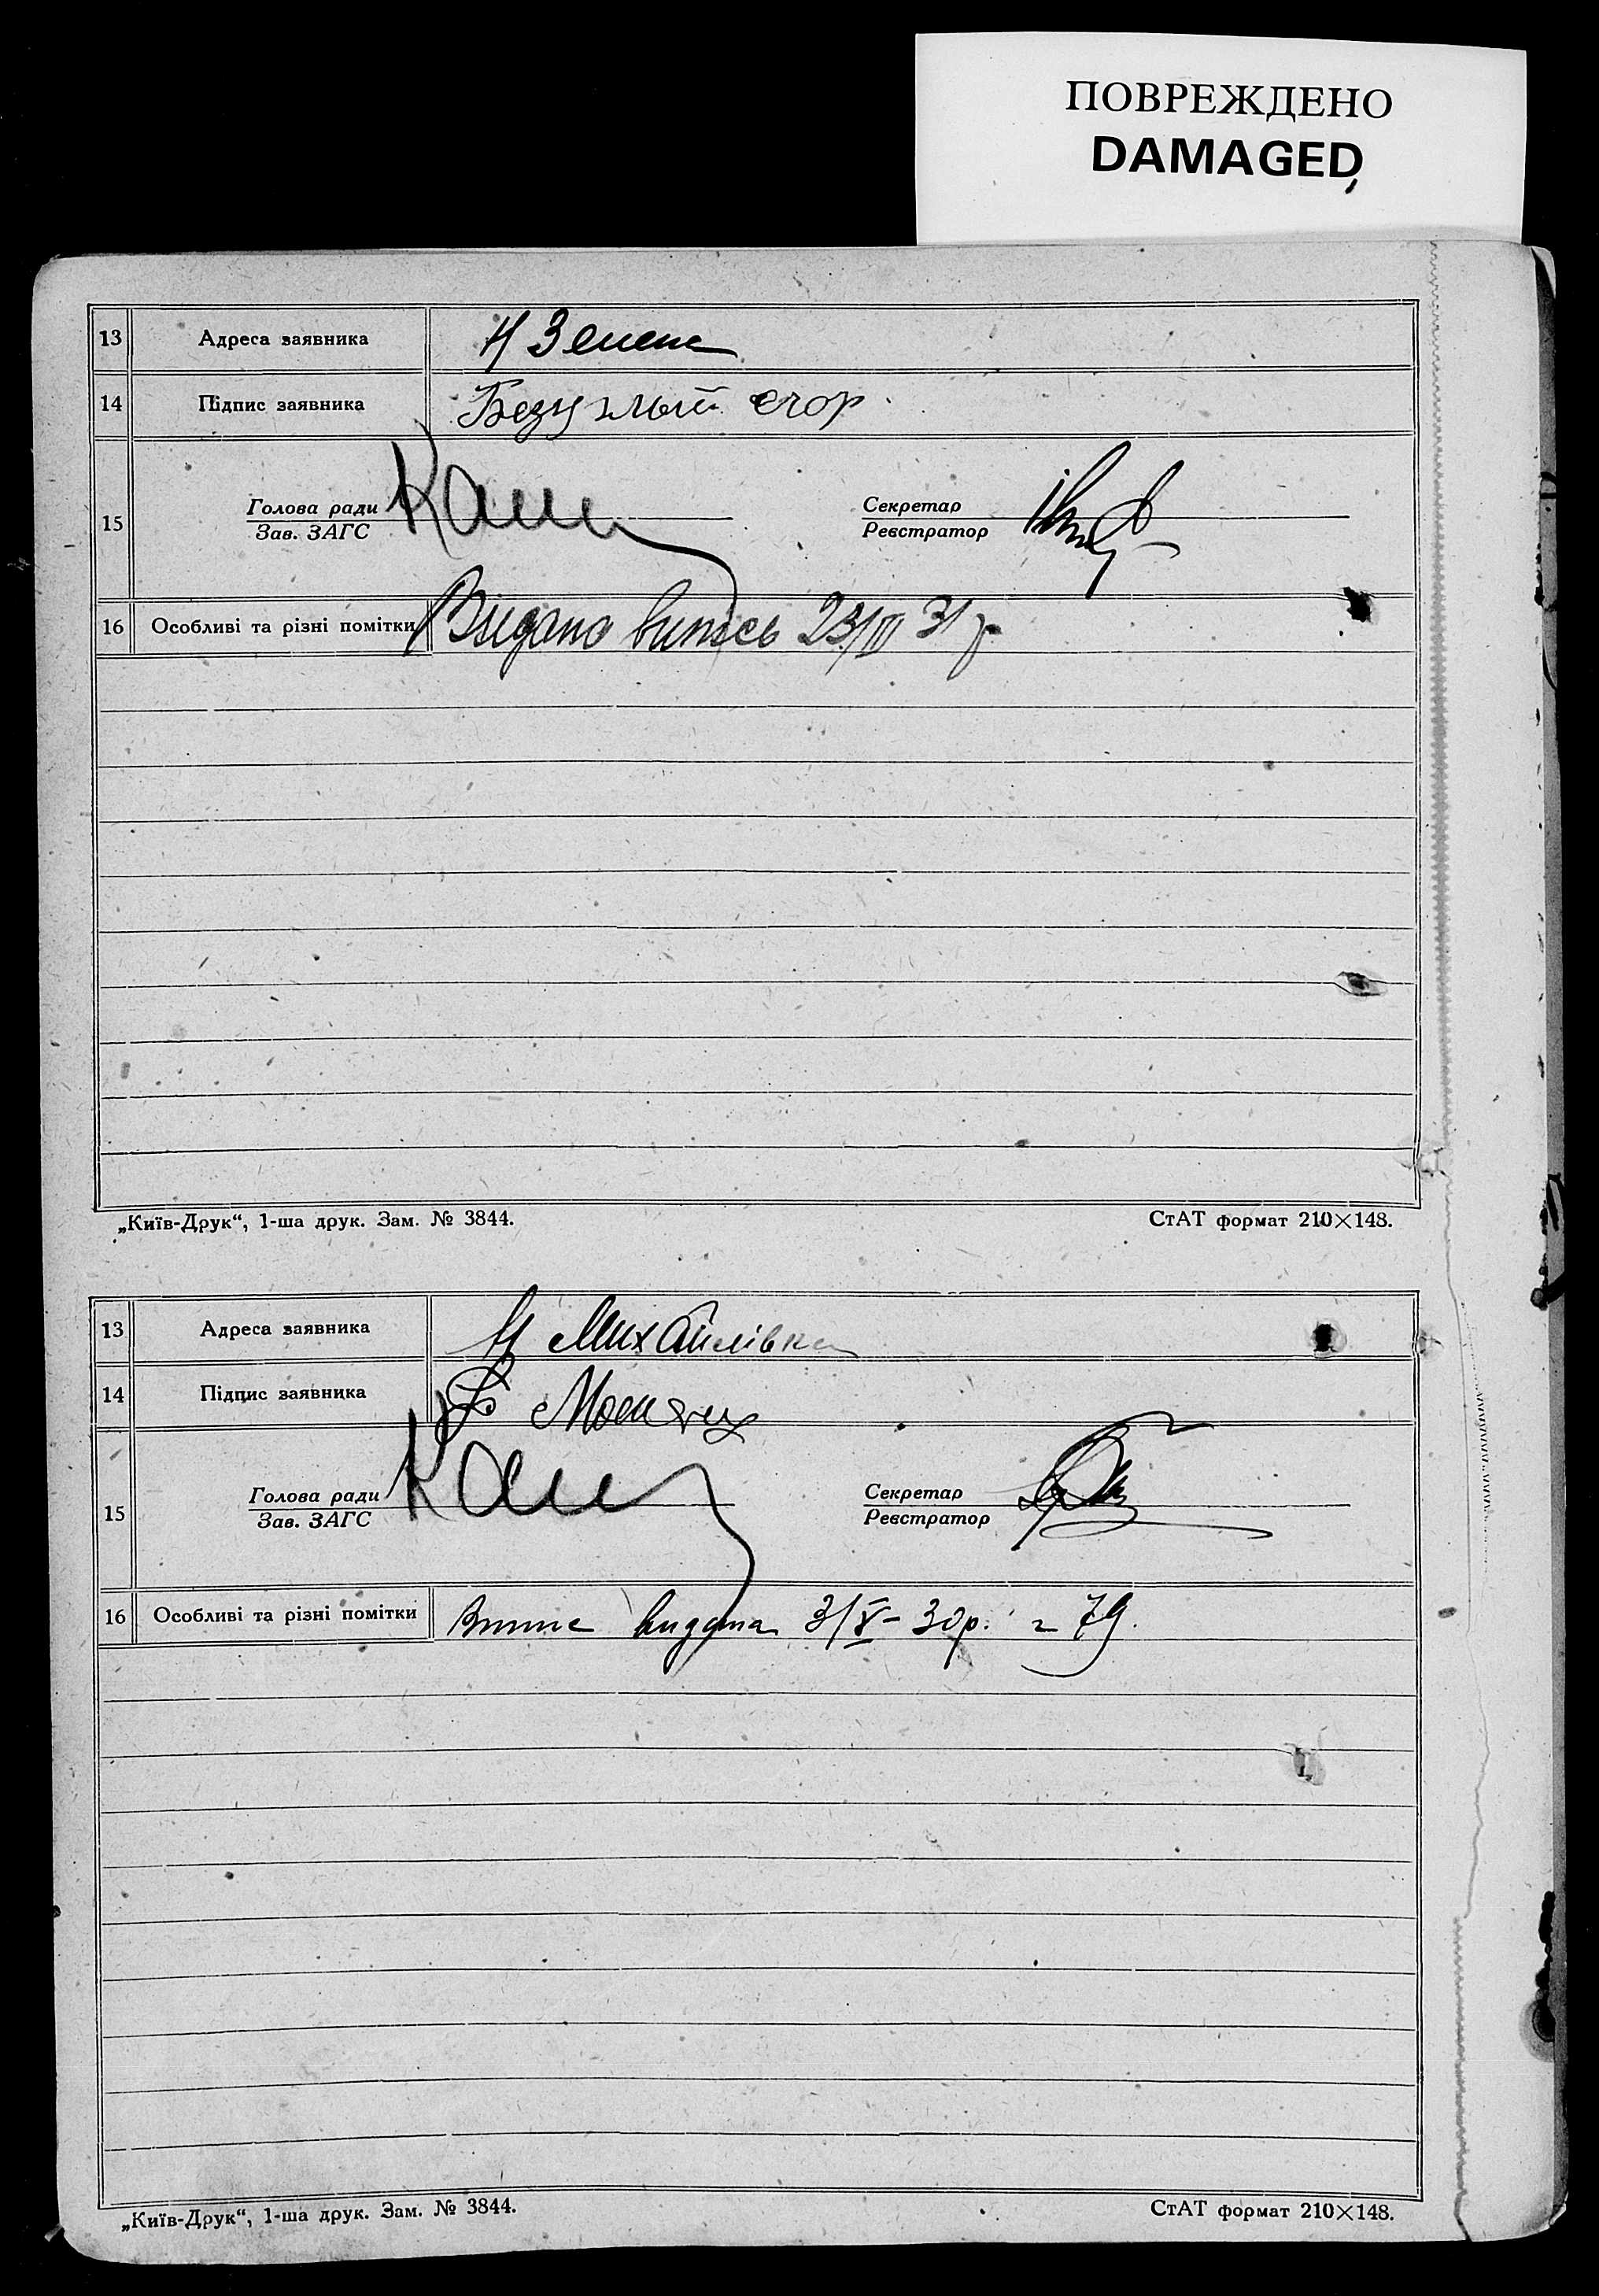 ПОВРЕЖДЕНО
DAMAGED
13 Адреса заявника
14 Підпис заявника егор
15 Голова ради Секретар
Зав. ЗАГС Реєстратор
16 Особливі та різні помітки Видано випись 23/III 31 р
„Київ-Друк“, 1-ша друк. Зам. № 3844. СтАТ формат 210×148.
13 Адреса заявника Михайлівка
14 Підпис заявника
15 Голова ради Секретар
Зав. ЗАГС Реєстратор
16 Особливі та різні помітки видана 3/V-30р. 79.
„Київ-Друк“, 1-ша друк. Зам. № 3844. СтАТ формат 210×148.